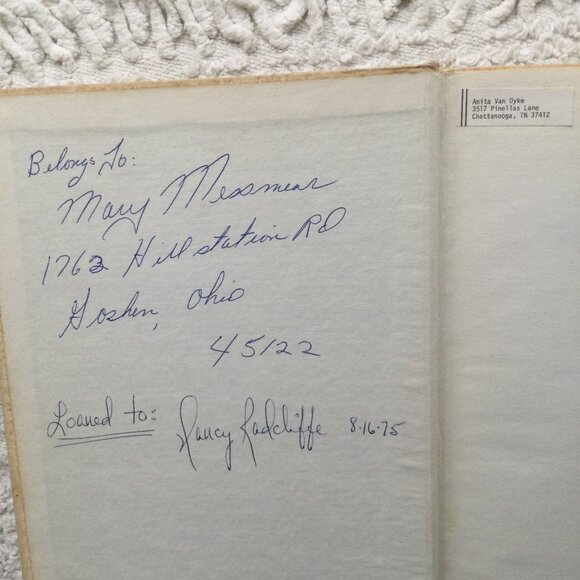 Belongs To:
Mary Messmear
1762 Hill station RD
Goshen, Ohio
45122
Loaned to: Nancy Radcliffe 8-16-75
Anita Van Dyke
3517 Pinellas Lane
Chattanooga, TN 37412